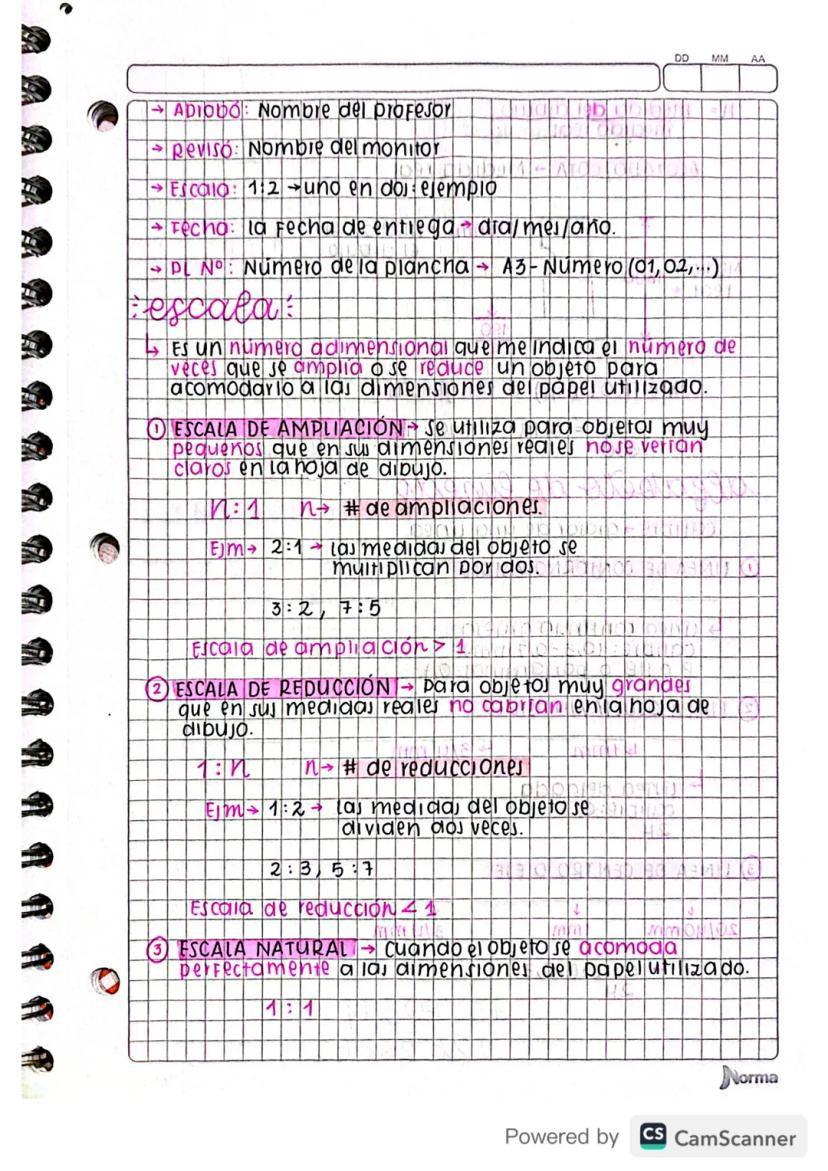 DD MM AA
→ Aprobó: Nombre del profesor
→ Revisó: Nombre del monitor
→ Escala: 1:2 → uno en dos: ejemplo
→ Fecha: la fecha de entrega → día/mes/año.
→ PL Nº: Número de la plancha → A3 - Número (01, 02, ...)
escala
↳ Es un número adimensional que me indica el número de
veces que se amplía o se reduce un objeto para
acomodarlo a las dimensiones del papel utilizado.
① ESCALA DE AMPLIACIÓN → se utiliza para objetos muy
pequeños que en sus dimensiones reales no se verían
claros en la hoja de dibujo.
n:1 n → # de ampliaciones.
Ejm → 2:1 → las medidas del objeto se
multiplican por dos.
3:2, 7:5
Escala de ampliación > 1
② ESCALA DE REDUCCIÓN → para objetos muy grandes
que en sus medidas reales no cabrían en la hoja de
dibujo.
1:n n → # de reducciones
Ejm → 1:2 → las medidas del objeto se
dividen dos veces.
2:3, 5:7
Escala de reducción < 1
③ ESCALA NATURAL → cuando el objeto se acomoda
perfectamente a las dimensiones del papel utilizado.
1:1
Norma
Powered by CS CamScanner